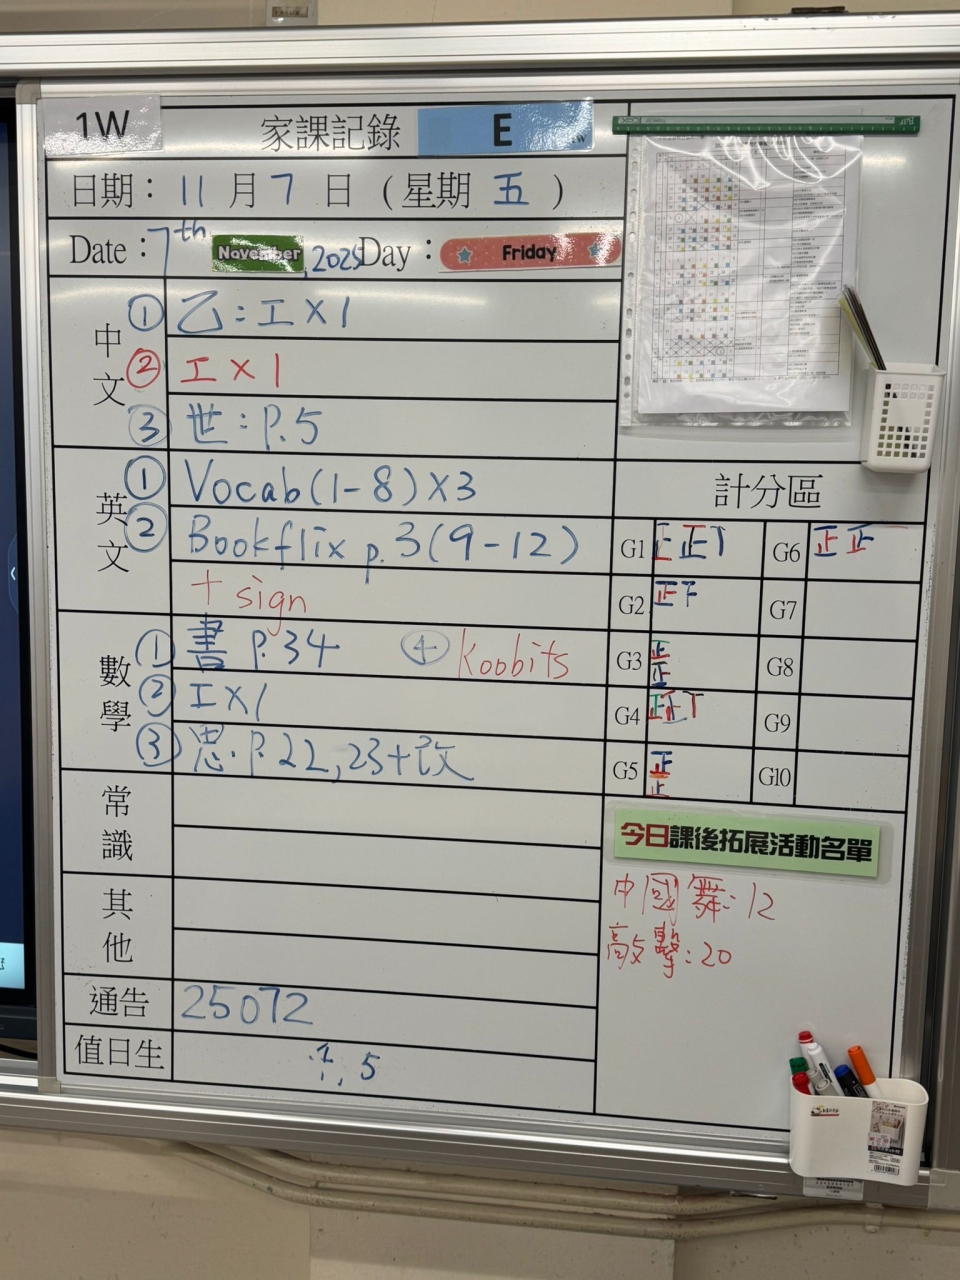 1W 家課記錄 E
日期：11月7日（星期五）
Date：7th November, 2025 Day：Friday
中文
① 乙：工×1
② 工×1
③ 世：P.5
英文
① Vocab(1-8)×3
② Bookflix p.3(9-12)
+ sign
數學
① 書 P.34 ④ koobits
② 工×1
③ 思．P.22,23+改
常識
其他
通告 25072
值日生 , 5
計分區
G1 正正 G6 正正
G2 正 G7
G3 正正 G8
G4 正正 G9
G5 正 G10
今日課後拓展活動名單
中國舞：12
敲擊：20